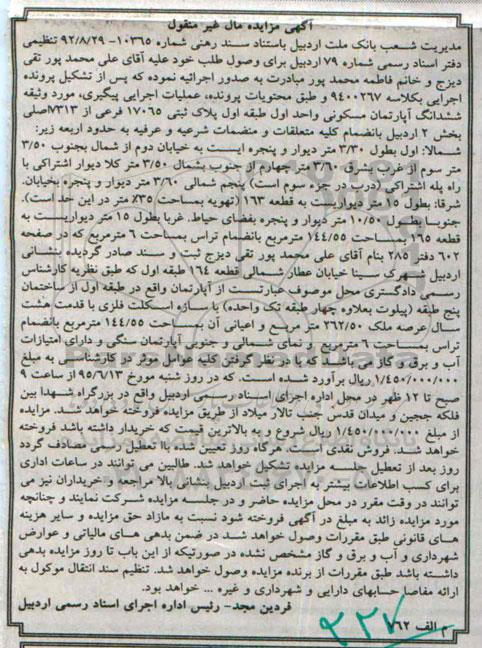 آگهی مزایده مال غیر منقول
مدیریت شعب بانک ملت اردبیل باستناد سند رهنی شماره ۱۰۳۶۵- ۹۲/۸/۲۹ تنظیمی
دفتر اسناد رسمی شماره ۷۹ اردبیل برای وصول طلب خود علیه آقای علی محمد پور تقی
دیزج و خانم فاطمه محمد پور مبادرت به صدور اجرائیه نموده که پس از تشکیل پرونده
اجرایی بکلاسه ۹۴۰۱۲۶۷ و طبق محتویات پرونده، عملیات اجرایی پیگیری، مورد وثیقه
ششدانگ آپارتمان مسکونی واحد اول طبقه اول پلاک ثبتی ۱۷۰۶۵ فرعی از ۷۳۱۳اصلی
بخش ۲ اردبیل بانضمام کلیه متعلقات و منضمات شرعیه و عرفیه به حدود اربعه زیر:
شمالا: اول بطول ۳/۳۰ متر دیوار و پنجره ایست به خیابان دوم از شمال بجنوب ۳/۵۰
متر سوم از غرب بشرق ۳/۶۰ متر چهارم از جنوب بشمال ۳/۵۰ متر کلا دیوار اشتراکی با
راه پله اشتراکی (درب در جزء سوم است) پنجم شمالی ۳/۶۰ متر دیوار و پنجره بخیابان.
شرقا: بطول ۱۵ متر دیواریست به قطعه ۱۶۳ (تهویه بمساحت ۳۵٪ متر در این حد است).
جنوبا بطول ۱۰/۵۰ متر دیوار و پنجره بفضای حیاط. غربا بطول ۱۵ متر دیواریست به
قطعه ۱۶۵ بمساحت ۱۴۴/۵۵ مترمربع بانضمام تراس بمساحت ۶ مترمربع که در صفحه
۶۰۲ دفتر ۲۸۵ بنام آقای علی محمد پور تقی دیزج ثبت و سند صادر گردیده بنشانی
اردبیل شهرک سینا خیابان عطار شمالی قطعه ۱۶۴ طبقه اول که طبق نظریه کارشناس
رسمی دادگستری محل موصوف عبارتست از آپارتمان واقع در طبقه اول از ساختمان
پنج طبقه (پیلوت بعلاوه چهار طبقه تک واحده) با سازه اسکلت فلزی با قدمت هشت
سال عرصه ملک ۲۶۲/۵۰ متر مربع و اعیانی آن بمساحت ۱۴۴/۵۵ مترمربع بانضمام
تراس بمساحت ۶ مترمربع و نمای شمالی و جنوبی آپارتمان سنگی و دارای امتیازات
آب و برق و گاز می باشد که با در نظر گرفتن کلیه عوامل موثر در کارشناسی به مبلغ
۱/۴۵۰/۰۰۰/۰۰۰ ریال برآورد شده است. که در روز شنبه مورخ ۹۵/۶/۱۳ از ساعت ۹
صبح تا ۱۲ ظهر در محل اداره اجرای اسناد رسمی اردبیل واقع در بزرگراه شهدا بین
فلکه ججین و میدان قدس جنب تالار میلاد از طریق مزایده فروخته خواهد شد. مزایده
از مبلغ ۱/۴۵۰/۰۰۰/۰۰۰ ریال شروع و به بالاترین قیمت که خریدار داشته باشد فروخته
خواهد شد. فروش نقدی است. هرگاه روز تعیین شده با تعطیل رسمی مصادف گردد
روز بعد از تعطیل جلسه مزایده تشکیل خواهد شد. طالبین می توانند در ساعات اداری
برای کسب اطلاعات بیشتر به اجرای ثبت اردبیل بنشانی بالا مراجعه و خریداران نیز می
توانند در وقت مقرر در محل مزایده حاضر و در جلسه مزایده شرکت نمایند و چنانچه
مورد مزایده زائد به مبلغ در آگهی فروخته شود نسبت به مازاد حق مزایده و سایر هزینه
های قانونی طبق مقررات وصول خواهد شد در ضمن بدهی های مالیاتی و عوارض
شهرداری و آب و برق و گاز مشخص نشده در صورتیکه از این باب تا روز مزایده بدهی
داشته باشد طبق مقررات از برنده مزایده وصول خواهد شد. تنظیم سند انتقال موکول به
ارائه مفاصا حسابهای دارایی و شهرداری و غیره ... خواهد بود.
فردین مجد- رئیس اداره اجرای اسناد رسمی اردبیل
م الف ۷۶۲
۲۲۷